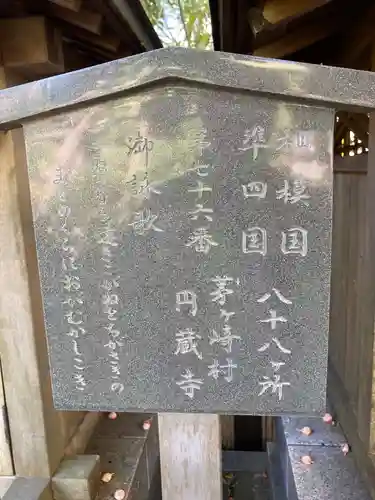 相模国
準四国 八十八ヶ所
第七十六番 茅ヶ崎村
円蔵寺
御詠歌
きこがねとちがさきの
まどのくらにおがむかしこき